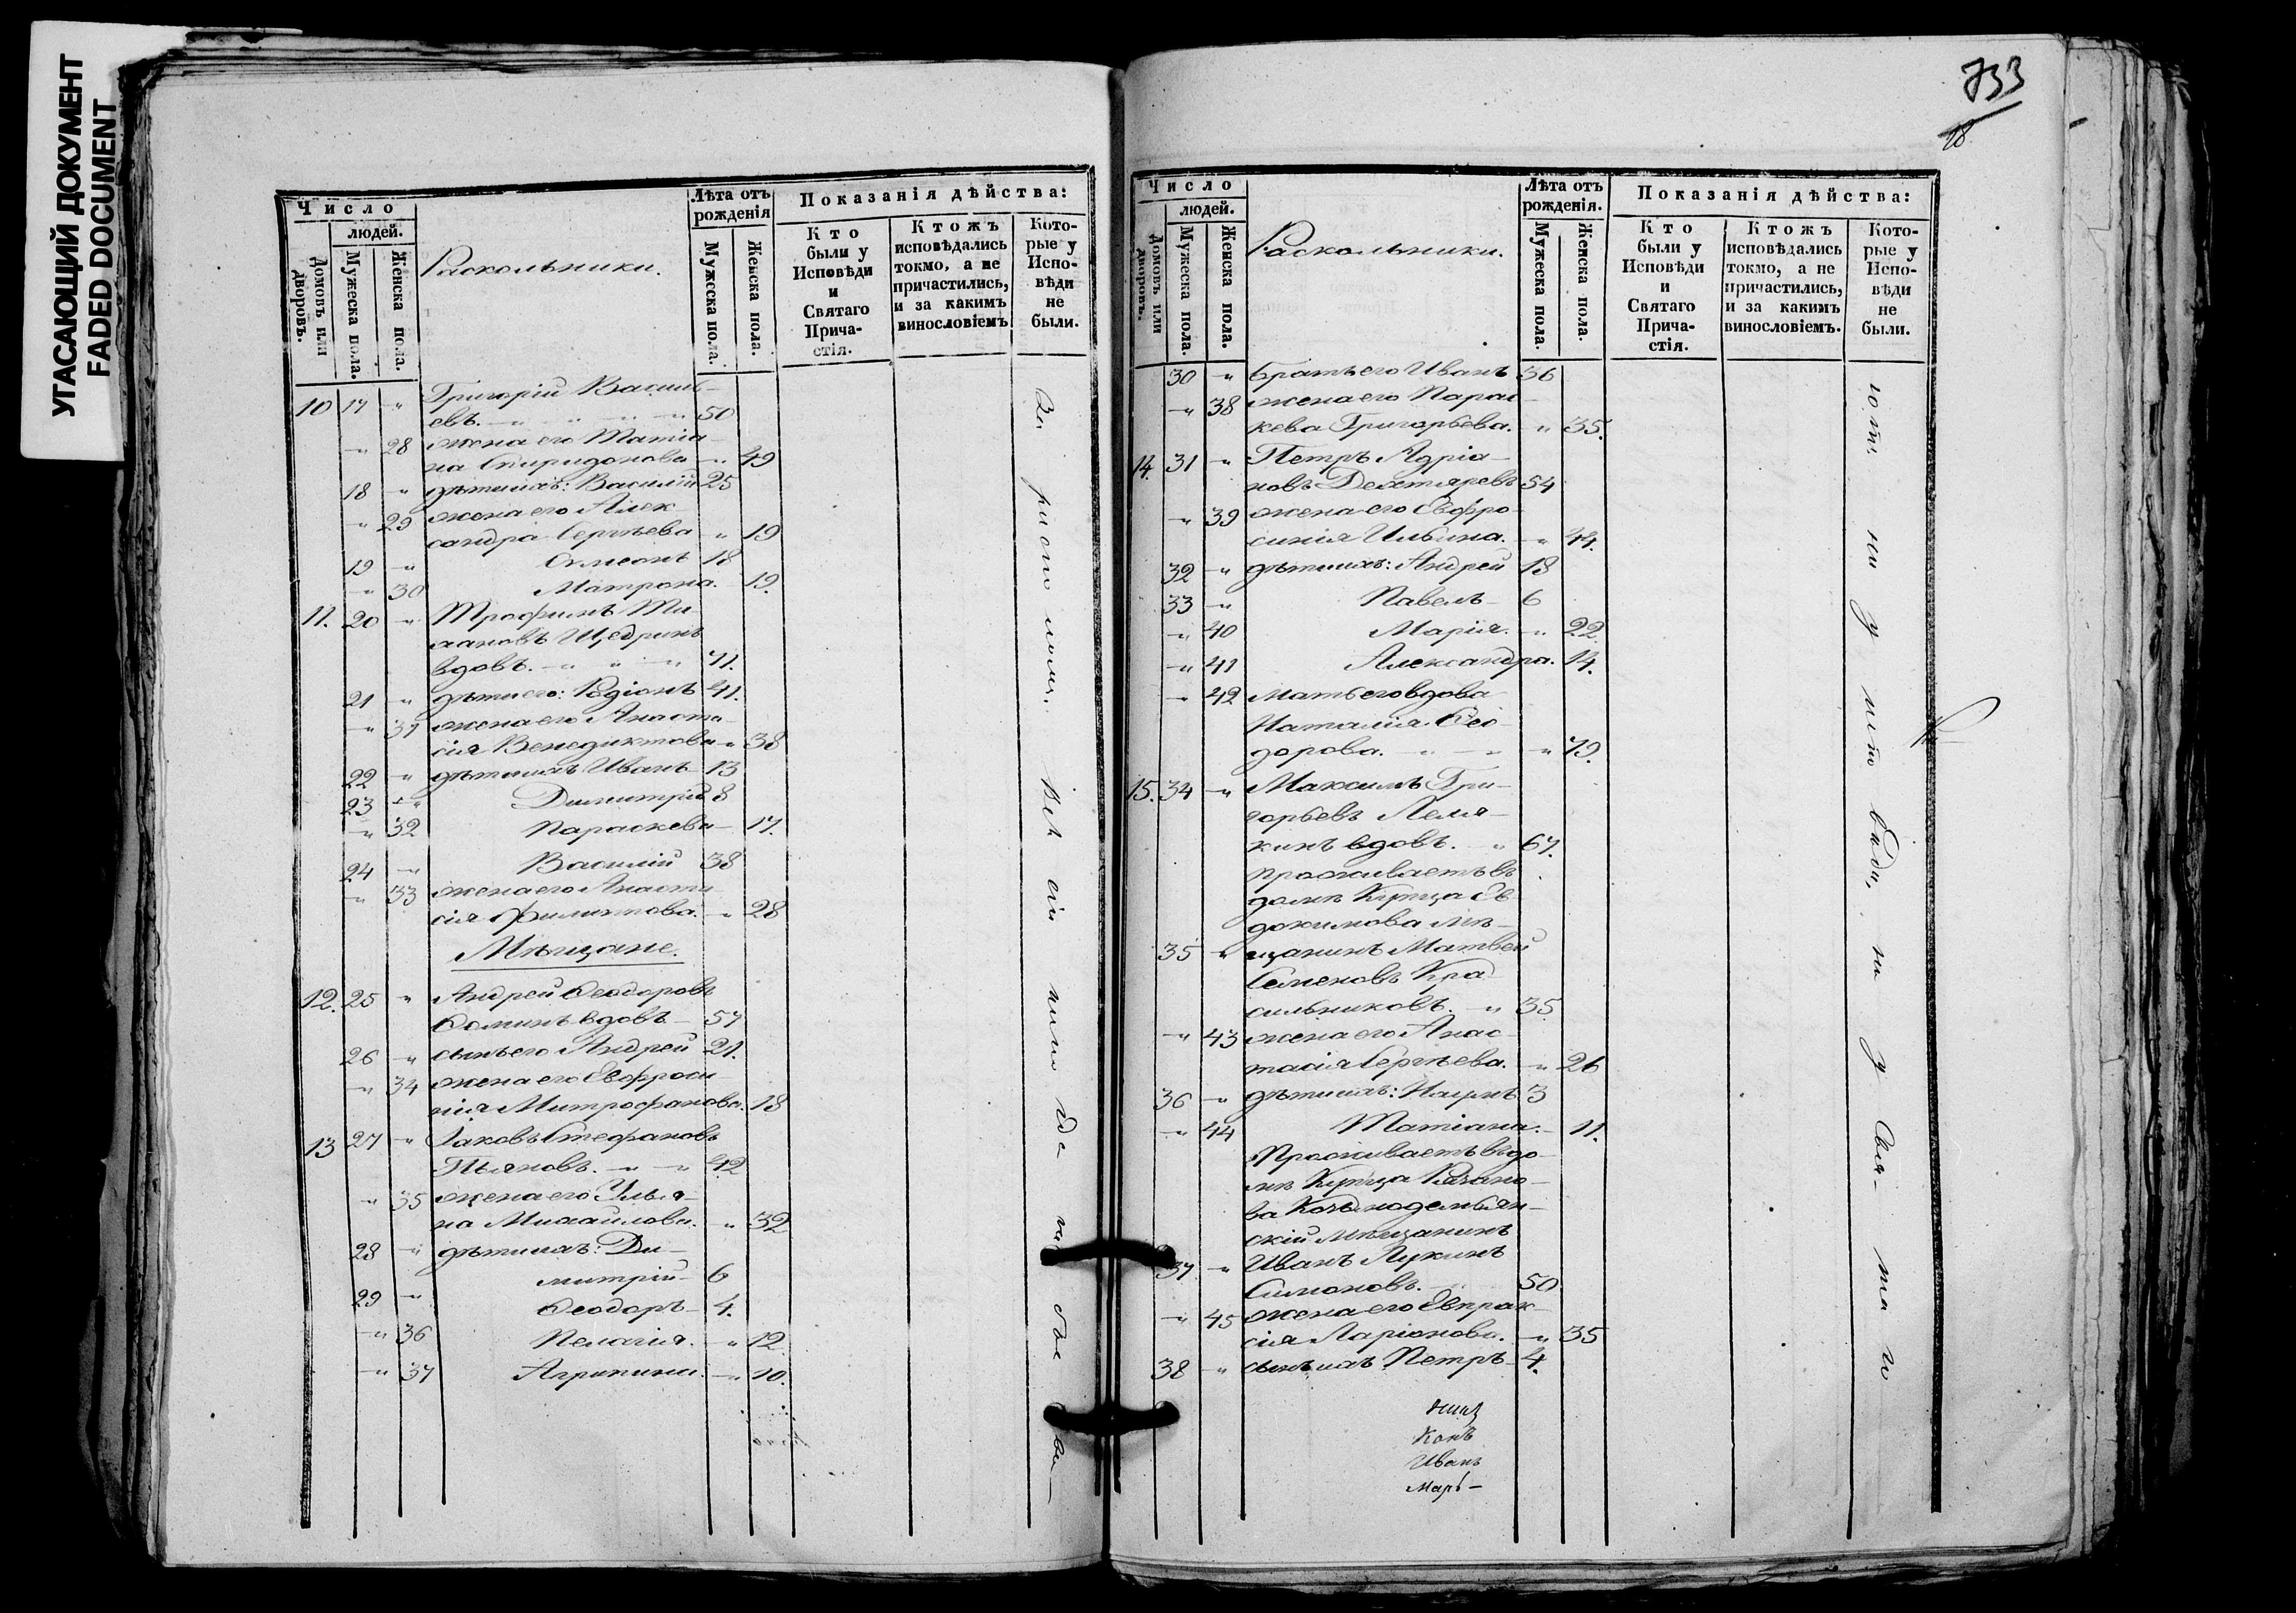 УГАСАЮЩИЙ ДОКУМЕНТ
FADED DOCUMENT
Число
людей.
Домовъ или дворовъ.
Мужеска пола.
Женска пола.
Раскольники.
Лѣта отъ рожденія
Мужеска пола.
Женска пола.
Показанія дѣйства:
Кто были у Исповѣди и Святаго Прича-стія.
Ктожъ исповѣдались токмо, а не причастились, и за какимъ винословіемъ
Кото-рые у Испо-вѣди не были.
10 17 " Григорій Василь-
евъ. 50
" 28 жена его Татіа-
на Спиридонова " 49
18 " дѣти ихъ: Василій 25
" 29 жена его Алек-
сандра Сергѣева " 19
19 " Симеонъ 18
" 30 Матрона. 19.
11. 20 " Трофимъ Ти-
Щедринъ
вдовъ. 71.
21 " дѣти его: Родіонъ 41.
" 31 жена его Анаста-
сія Венедиктова " 38
22 " дѣти ихъ Иванъ 13
23 " Димитрій 8
" 32 Параскева 17.
24 " Василій 38
" 33 жена его Анаста-
сія Филиппова. " 28
Мѣщане.
12. 25 " Андрей Ѳеодоровъ
Ѳоминъ вдовъ 57
26 " сынъ его Андрей 21.
" 34 жена его Евфроси-
нія Митрофанова. 18
13 27 " Іаковъ Стефановъ
Пьяновъ. 42
" 35 жена его Улья-
на Михаилова. " 32
28 " дѣти ихъ: Ди-
митрій 6
29 " Ѳеодоръ 4.
" 36 Пелагія. " 12
" 37 Агрипина. " 10.
733
18
Число
людей.
Домовъ или дворовъ.
Мужеска пола.
Женска пола.
Раскольники.
Лѣта отъ рожденія.
Мужеска пола.
Женска пола.
Показанія дѣйства:
Кто были у Исповѣди и Святаго Прича-стія.
Ктожъ исповѣдались токмо, а не причастились, и за какимъ винословіемъ.
Кото-рые у Испо-вѣди не были.
30 " Братъ его Иванъ 36
" 38 жена его Парас-
кева Григорьева. " 35.
14. 31 " Петръ Адріа-
новъ Дехтяревъ 54
" 39 жена его Евфро-
синія Ильина. " 44.
32 " дѣти ихъ: Андрей 18
33 " Павелъ 6
" 40 Марія. " 22.
" 41 Александра. 14.
" 42 Мать его вдова
Наталія Ѳео-
дорова. " 79.
15. 34 " Максимъ Гри-
горьевъ Леля-
кинъ вдовъ. " 67.
проживаетъ въ
домѣ Купца Ев-
докимова мѣ-
35 " щанинъ Матвей
Семеновъ Кра-
сильниковъ. " 35
" 43 жена его Анас-
тасія Сергѣева. " 26
36 " дѣти ихъ: Наумъ 3
" 44 Татіана. 11.
Проживаетъ въ до-
мѣ Купца Рязано-
ва Козьмодемьян-
скій мѣщанинъ
37 " Иванъ Лукинъ
Симоновъ. 50
" 45 жена его Евпрак-
сія Ларіонова. " 35
38 " сынъ ихъ Петръ 4.
Иванъ
Марь-